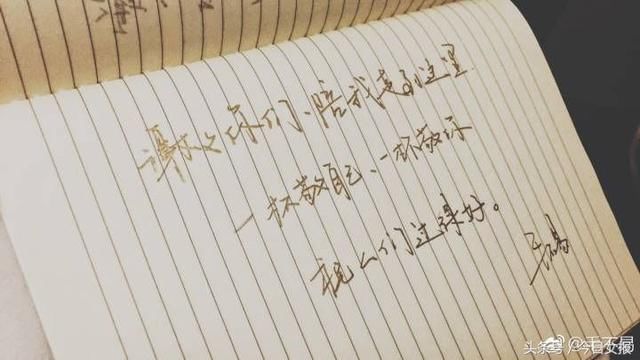 谢谢你们、陪我走到这里
一杯敬自己、一杯敬你
祝 们过得好。
毛不易
@毛不易
头条号 / 今日女报